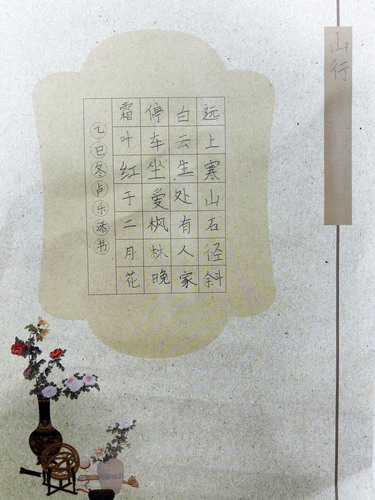 山行
远上寒山石径斜
白云生处有人家
停车坐爱枫林晚
霜叶红于二月花
乙巳冬卢乐涵书